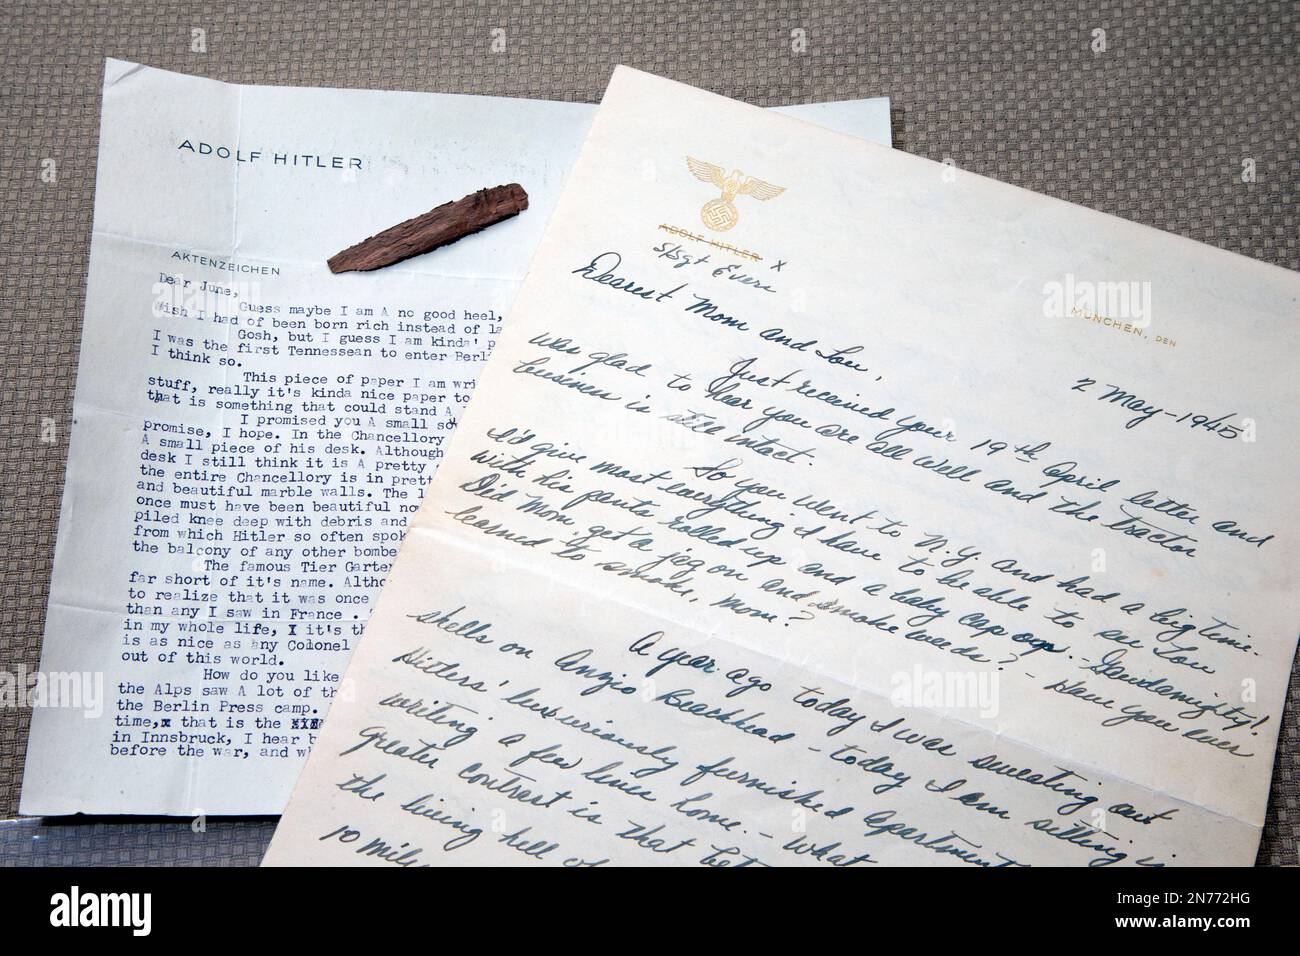 ADOLF HITLER
AKTENZEICHEN
Dear June,
Guess maybe I am A no good heel,
wish I had of been born rich instead of la
Gosh, but I guess I am kinda' p
I was the first Tennessean to enter Berli
I think so.
This piece of paper I am wri
stuff, really it's kinda nice paper to
that is something that could stand A
I promised you A small so
promise, I hope. In the Chancellory
A small piece of his desk. Although
desk I still think it is A pretty
the entire Chancellory is in prett
and beautiful marble walls. The l
once must have been beautiful no
piled knee deep with debris and
from which Hitler so often spok
the balcony of any other bombe
The famous Tier Garten
far short of it's name. Altho
to realize that it was once
than any I saw in France .
in my whole life, I it's th
is as nice as any Colonel
out of this world.
How do you like
the Alps saw A lot of th
the Berlin Press camp.
time,x that is the
in Innsbruck, I hear b
before the war, and wh
ADOLF HITLER X
S/Sgt Evers
MÜNCHEN, DEN
2 May-1945
Dearest Mom and Lou,
Just received your 19th April letter and
was glad to hear you are all well and the tractor
business is still intact.
So you went to N.Y. and had a big time.
I'd give most everything I have to be able to see Lou
with his pants rolled up and a baby cap on. - Goudamighty!
Did Mom get a jag on and smoke weeds? - Have you ever
learned to smoke, Mom?
A year ago today I was sweating out
shells on Anzio Beachhead - today I am sitting in
Hitlers' luxuriously furnished apartment
writing a few lines home. - What
greater contrast is that bet
the living hell of
10 mile
alamy
Image ID: 2N772HG
www.alamy.com